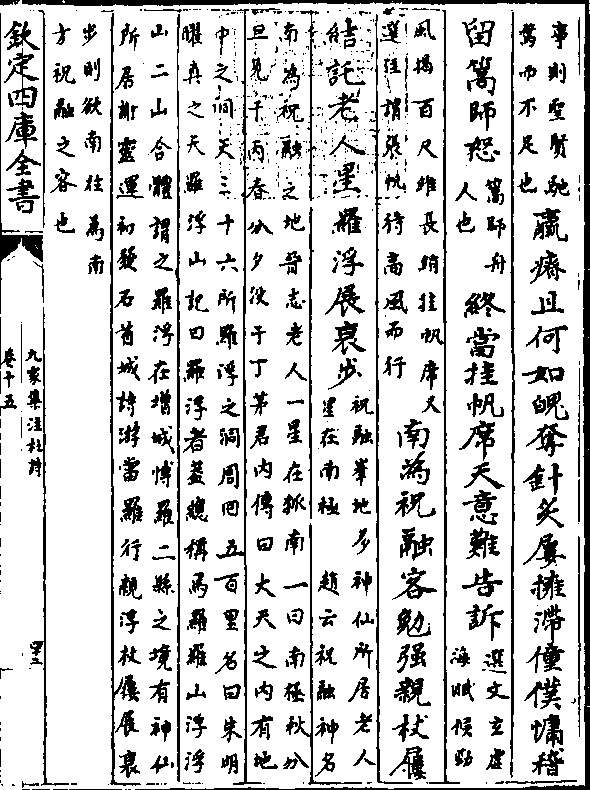 事則聖賢馳
騖而不足也
羸瘠且何如魄奪針灸屢擁滯僮僕慵稽
留篙師怒
篙師舟
人也
終當挂帆席天意難告訴
選文玄虚
海賦候勁
風揭百尺維長綃挂帆席又
選注謂張帆待高風而行
南為祝融客勉强親杖屨
結託老人星羅浮展衰步
祝融峯地多神仙所居老人
星在南極 趙云祝融神名
南為祝融之地晉志老人一星在弧南一曰南極秋分
旦見于丙春分夕没于丁茅君内傳曰大天之内有地
中之洞天三十六所羅浮之洞周囘五百里名曰朱明
曜真之天羅浮山記曰羅浮者蓋總稱焉羅羅山浮浮
山二山合體謂之羅浮在增城博羅二縣之境有神仙
所居謝靈運初發石首城詩游當羅行親浮杖屨展衰
步則欲南往為南
方祝融之客也
欽定四庫全書
九家集注杜詩
卷十五